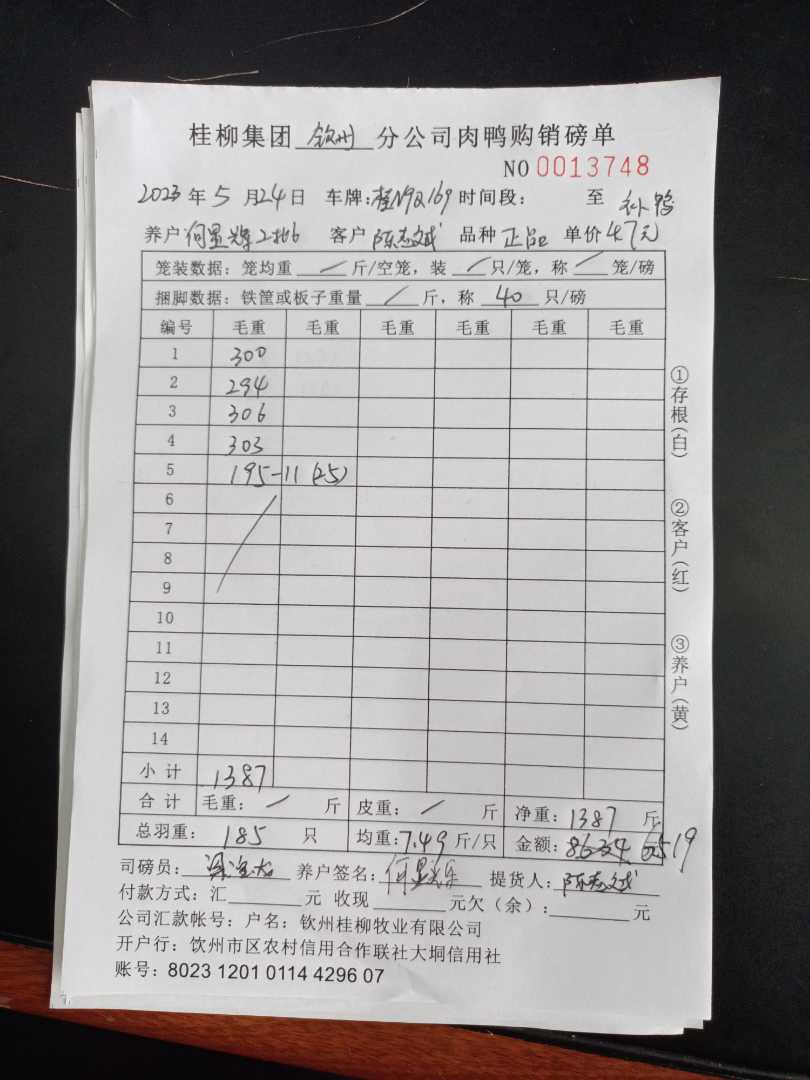 桂柳集团 钦州 分公司肉鸭购销磅单
NO 0013748
2023 年 5 月 24 日 车牌：桂N9Q169 时间段： 至 补鸭
养户 何显辉2批6 客户 陈志斌 品种 正品 单价 4.7元
笼装数据：笼均重 / 斤/空笼，装 / 只/笼，称 / 笼/磅
捆脚数据：铁筐或板子重量 / 斤，称 40 只/磅
编号 毛重 毛重 毛重 毛重 毛重 毛重
1 300
2 294
3 306
4 303
5 195-11 (25)
6
7
8
9
10
11
12
13
14
小计 1387
合计 毛重： / 斤 皮重： / 斤 净重：1387 斤
总羽重： 185 只 均重：7.49 斤/只 金额： 6519
司磅员： 养户签名：何显辉 提货人：陈志斌
付款方式：汇 元 收现 元欠（余）： 元
公司汇款帐号：户名：钦州桂柳牧业有限公司
开户行：饮州市区农村信用合作联社大垌信用社
账号：8023 1201 0114 4296 07
①存根（白）
②客户（红）
③养户（黄）